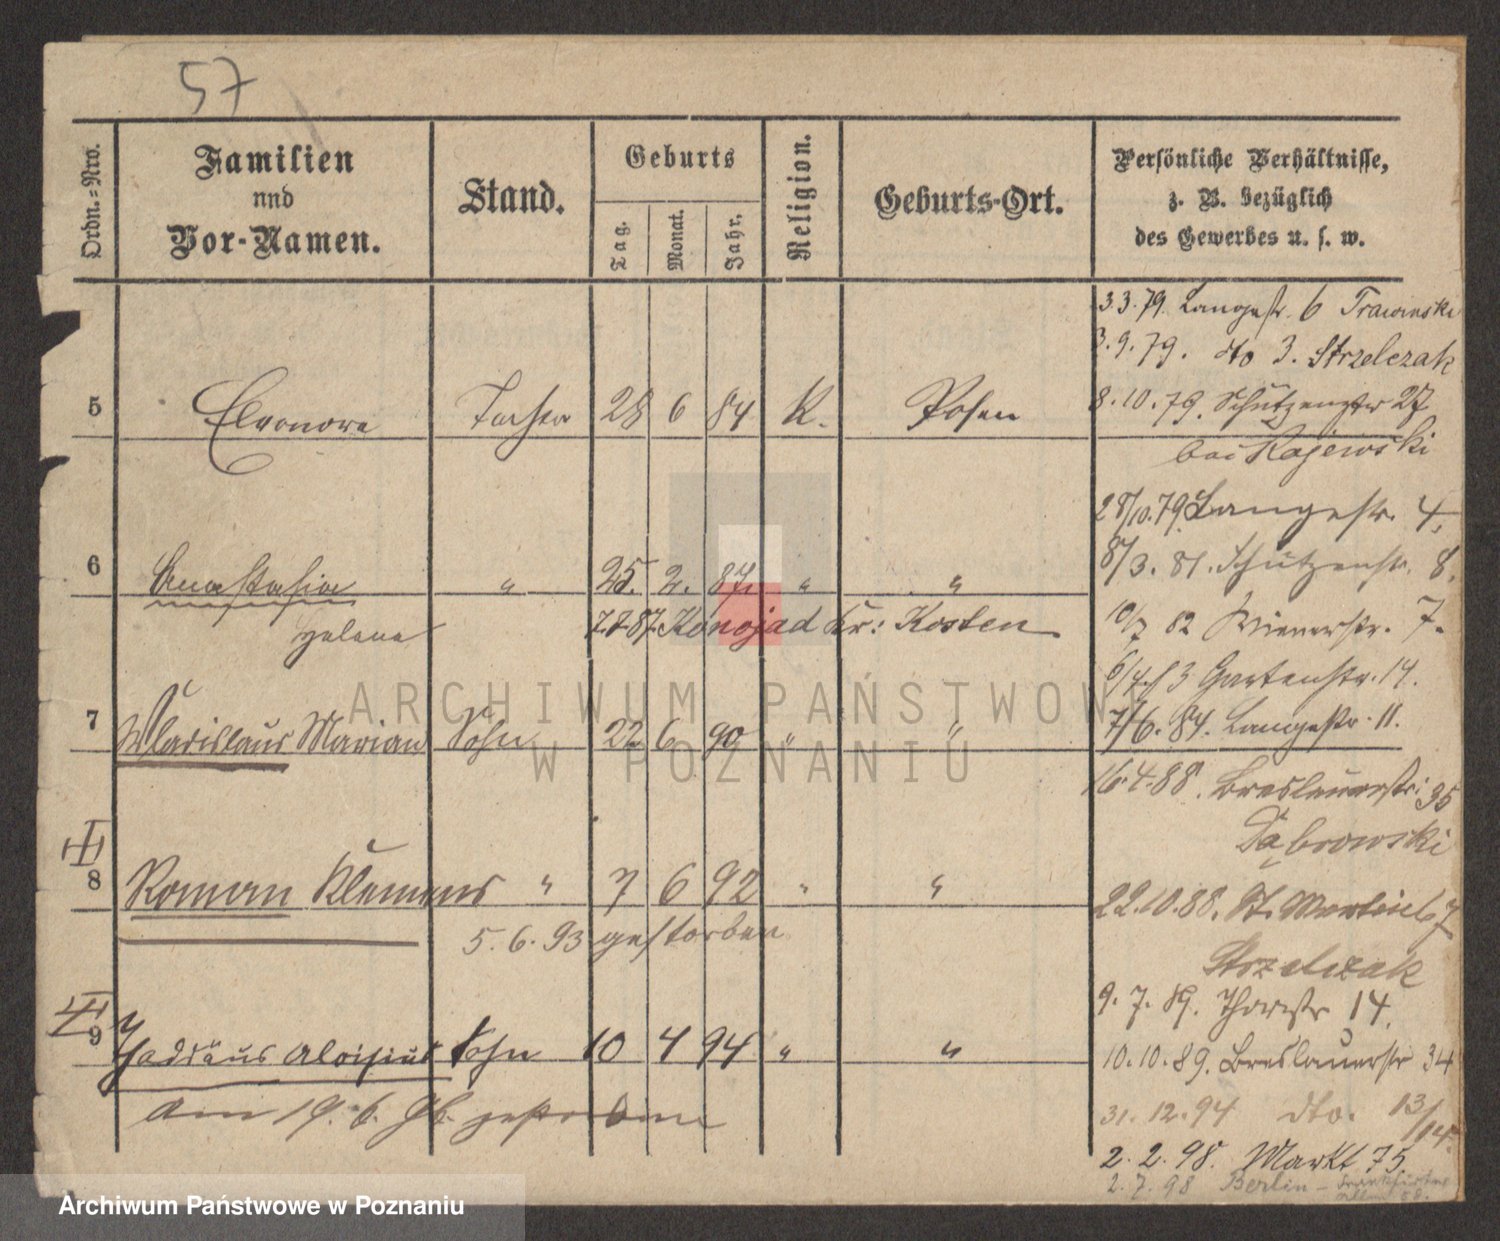 57
Ordn.-Nro.
Familien
und
Vor-Namen.
Stand.
Geburts
Tag.
Monat.
Jahr.
Religion.
Geburts-Ort.
Persönliche Verhältnisse,
z. B. bezüglich
des Gewerbes u. s. w.
3.3.79. Langestr. 6 Trawinski
3.9.79. dto 3. Strzelczak
5 Eleonore Tochter 28 6 84 K. Posen
8.10.79. Schützenstr 27
bei Rajewski
28/10.79 Langestr. 4,
6 Anastasia " 25. 2. 87. " "
8/3. 81. Schützenstr. 8.
Helene 7.7.87. Konojad Kr: Kosten
10/7 82 Wienerstr. 7.
6/4.83 Gartenstr. 14.
7 Wladislaus Marian Sohn 22 6 90 " "
7/6. 84. Langestr. 11.
16.4.88. Breslauerstr: 35
Dąbrowski
8 Roman Klemens " 7 6 92 " "
22.10.88. St. Martin 67
5. 6. 93 gestorben
Strzelczak
9. 7. 89. Thorstr 14.
9 Thaddäus Aloisius Sohn 10 4 94 " "
10.10.89. Breslauerstr 34
am 19. 6. 96. gestorben
31. 12. 94 dto. 13/14.
2. 2. 98. Markt 75.
2. 7. 98 Berlin – Frankfurter
Allee 58.
ARCHIWUM PAŃSTWOW
W POZNANIU
Archiwum Państwowe w Poznaniu